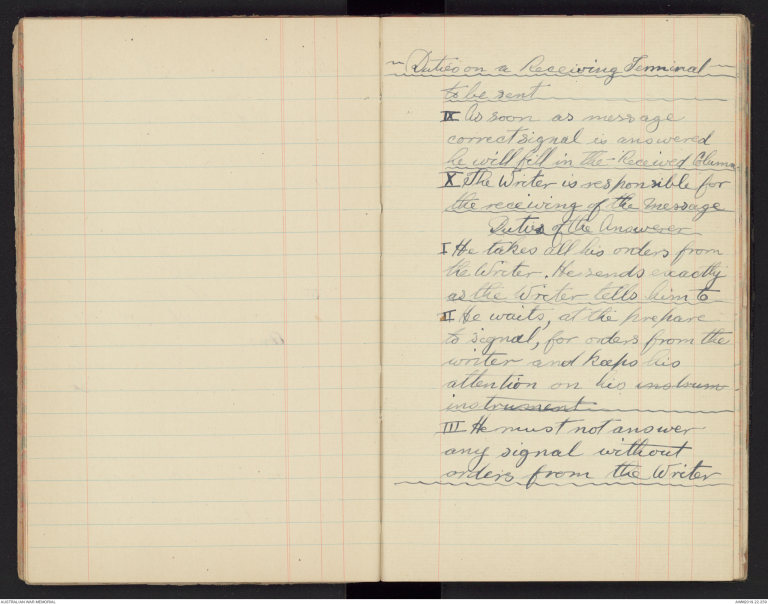 Duties on a Receiving Terminal
to be sent
IX As soon as message
correct signal is answered
he will fill in the Received Colum
X The Writer is responsible for
the receiving of the Message
Duties of the Answerer
I He takes all his orders from
the Writer. He sends exactly
as the Writer tells him to
II He waits, at the prepare
to signal, for orders from the
writer and keeps his
attention on his instrum
instrument
III He must not answer
any signal without
orders from the Writer
AUSTRALIAN WAR MEMORIAL